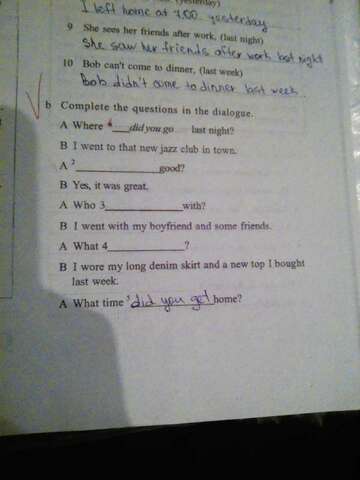 (yesterday)
I left home at 7.00 yesterday
9 She sees her friends after work. (last night)
She saw her friends after work last night
10 Bob can't come to dinner, (last week)
Bob didn't come to dinner last week
b Complete the questions in the dialogue.
A Where did you go last night?
B I went to that new jazz club in town.
A 2____________good?
B Yes, it was great.
A Who 3____________with?
B I went with my boyfriend and some friends.
A What 4____________?
B I wore my long denim skirt and a new top I bought
last week.
A What time 5 did you get home?